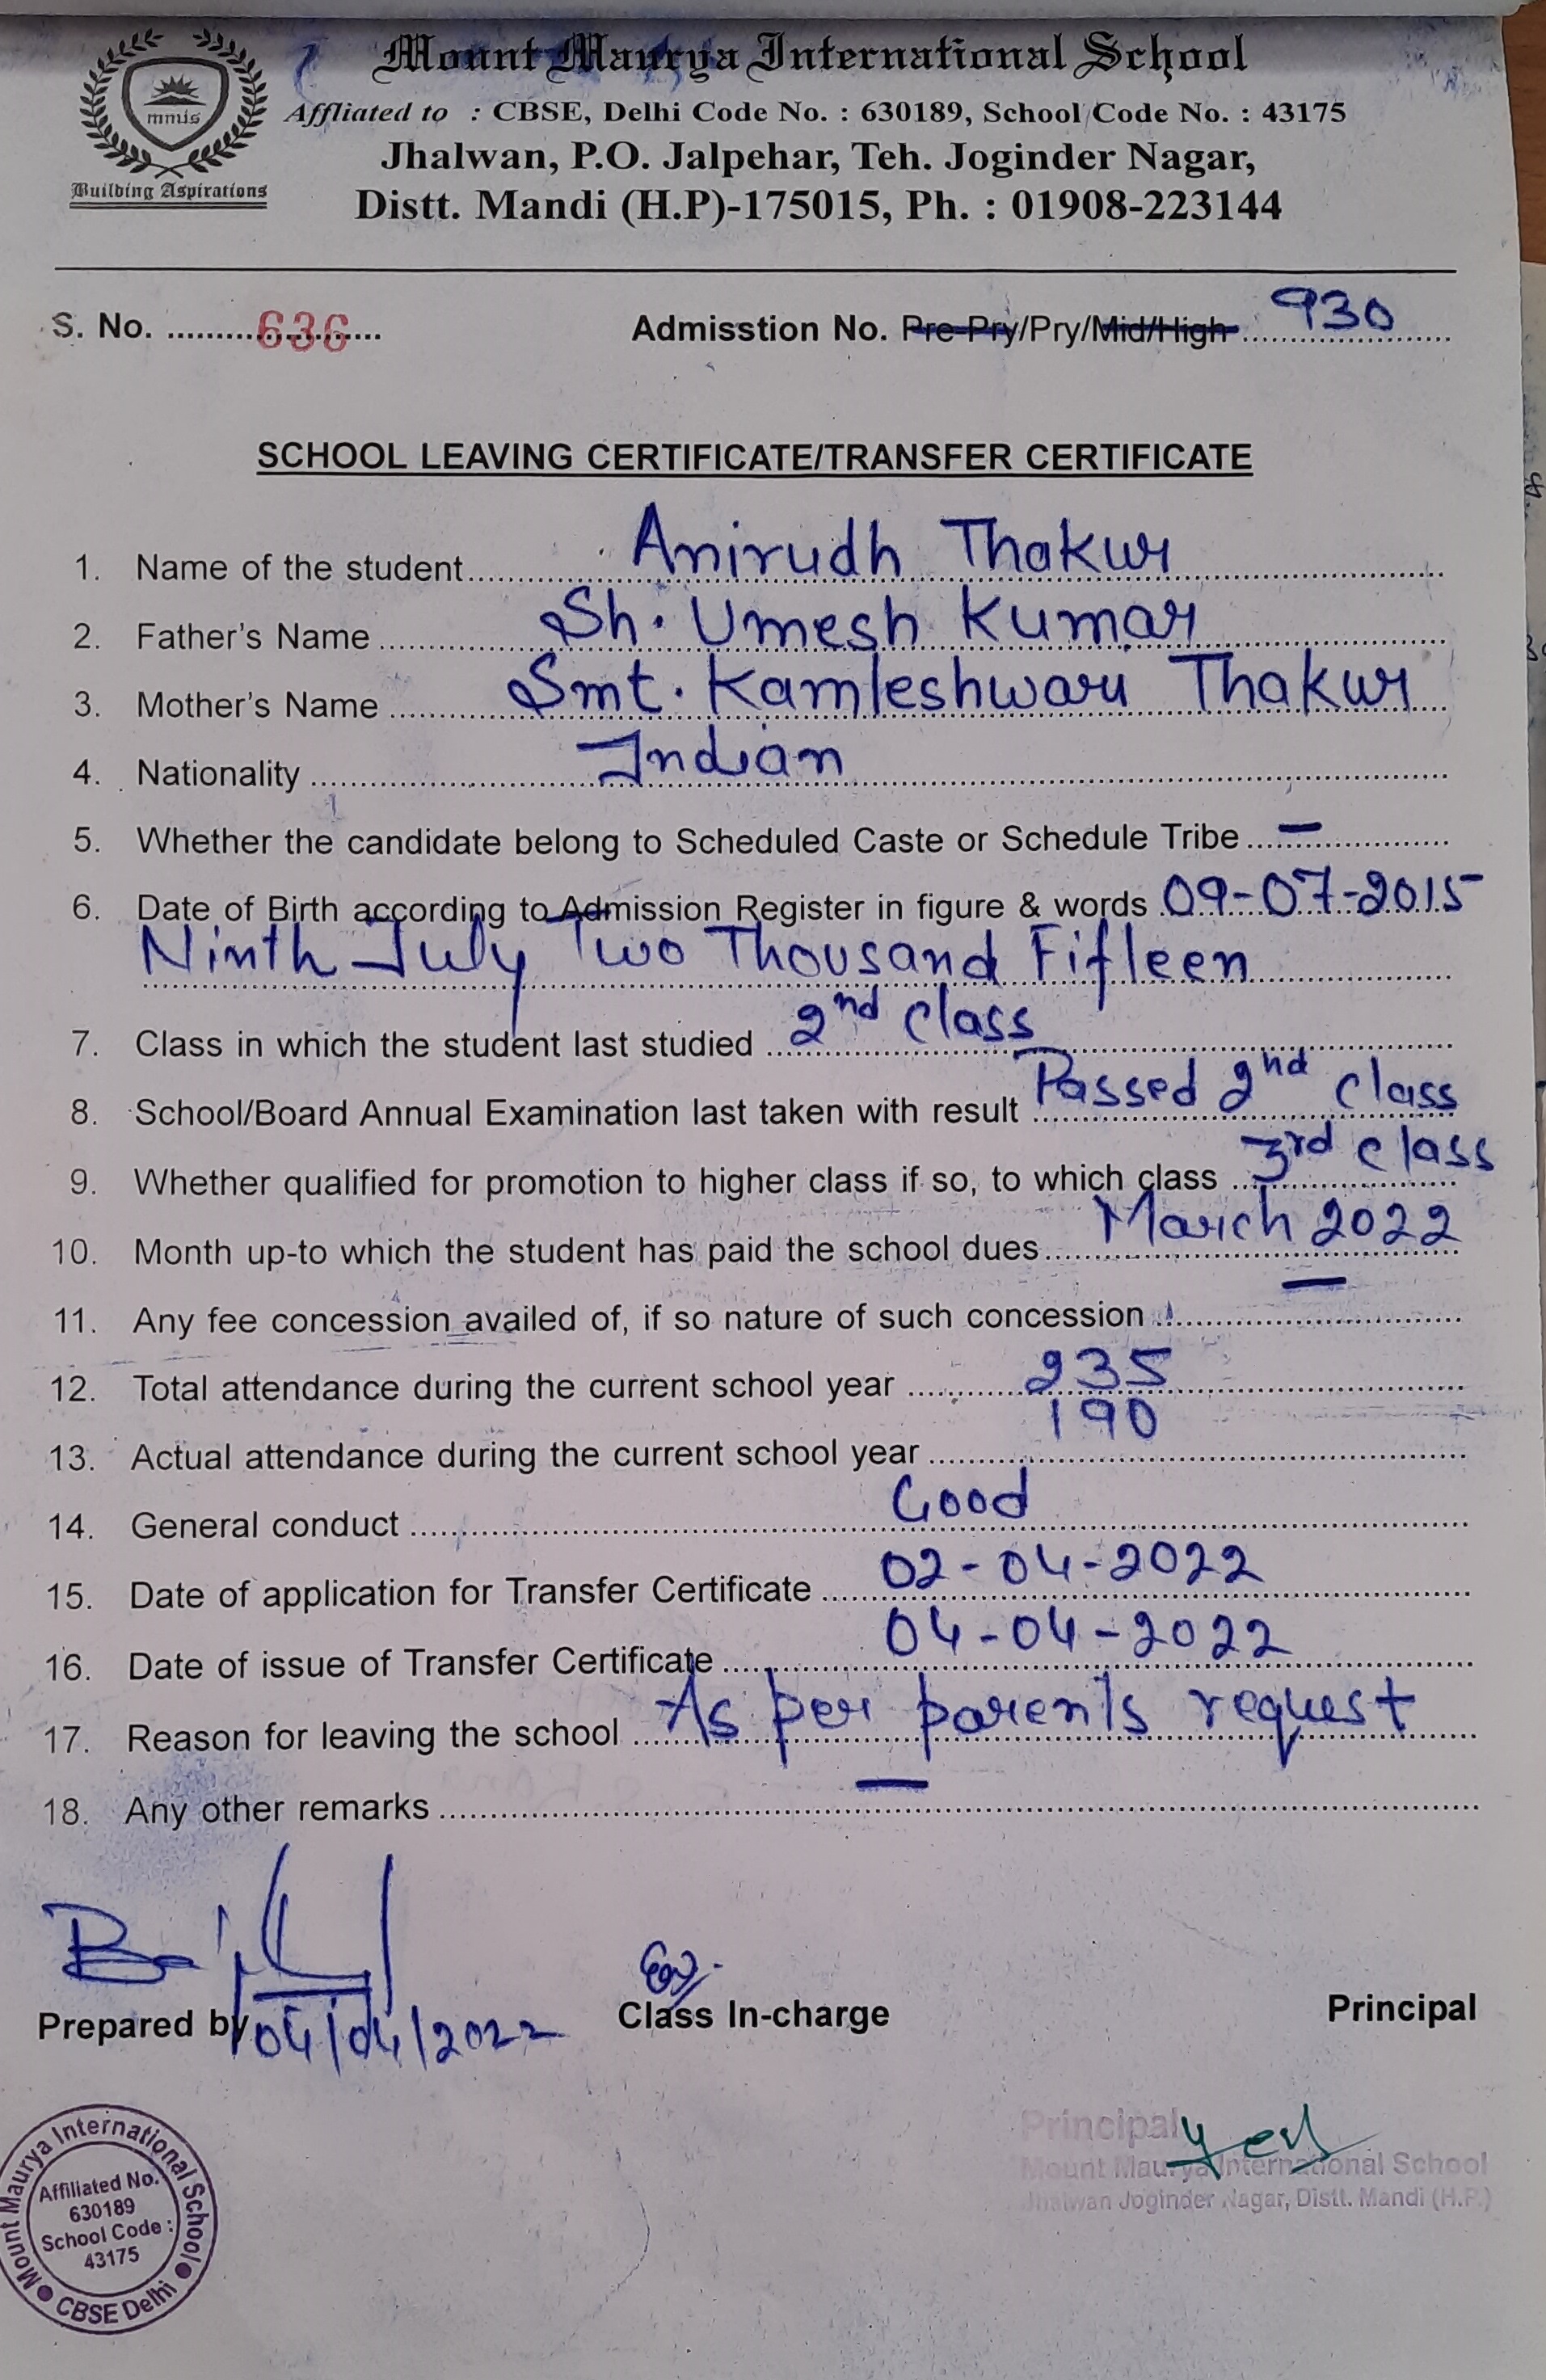 Mount Maurya International School
mmis
Building Aspirations
Affliated to : CBSE, Delhi Code No. : 630189, School Code No. : 43175
Jhalwan, P.O. Jalpehar, Teh. Joginder Nagar,
Distt. Mandi (H.P)-175015, Ph. : 01908-223144
S. No. 636
Admisstion No. Pre-Pry/Pry/Mid/High 930
SCHOOL LEAVING CERTIFICATE/TRANSFER CERTIFICATE
1. Name of the student Anirudh Thakur
2. Father's Name Sh. Umesh Kumar
3. Mother's Name Smt. Kamleshwari Thakur
4. Nationality Indian
5. Whether the candidate belong to Scheduled Caste or Schedule Tribe —
6. Date of Birth according to Admission Register in figure & words 09-07-2015
Ninth July Two Thousand Fifteen
7. Class in which the student last studied 2nd class
8. School/Board Annual Examination last taken with result Passed 2nd class
9. Whether qualified for promotion to higher class if so, to which class 3rd class
10. Month up-to which the student has paid the school dues March 2022
11. Any fee concession availed of, if so nature of such concession —
12. Total attendance during the current school year 235
13. Actual attendance during the current school year 190
14. General conduct Good
15. Date of application for Transfer Certificate 02-04-2022
16. Date of issue of Transfer Certificate 04-04-2022
17. Reason for leaving the school As per parents request
18. Any other remarks —
Prepared by 04/04/2022
Class In-charge
Principal
Mount Maurya International School
Affiliated No.
630189
School Code :
43175
CBSE Delhi
Principal
Mount Maurya International School
Jhalwan Joginder Nagar, Distt. Mandi (H.P.)